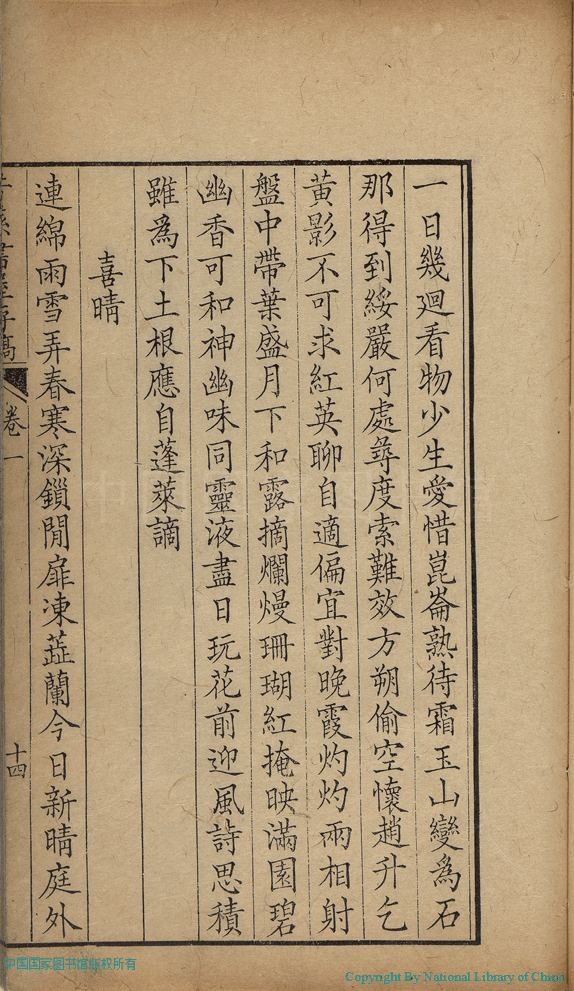 一日幾迴看物少生愛惜崑崙熟待霜玉山變為石
那得到綏嚴何處尋度索難效方朔偷空懷趙升乞
黃影不可求紅英聊自適偏宜對晚霞灼灼兩相射
盤中帶葉盛月下和露摘爛熳珊瑚紅掩映滿園碧
幽香可和神幽味同靈液盡日玩花前迎風詩思積
雖為下土根應自蓬萊謫
喜晴
連綿雨雪弄春寒深鎖閒扉凍蕋蘭今日新晴庭外
卷一
十四
中国国家图书馆版权所有
Copyright By National Library of China